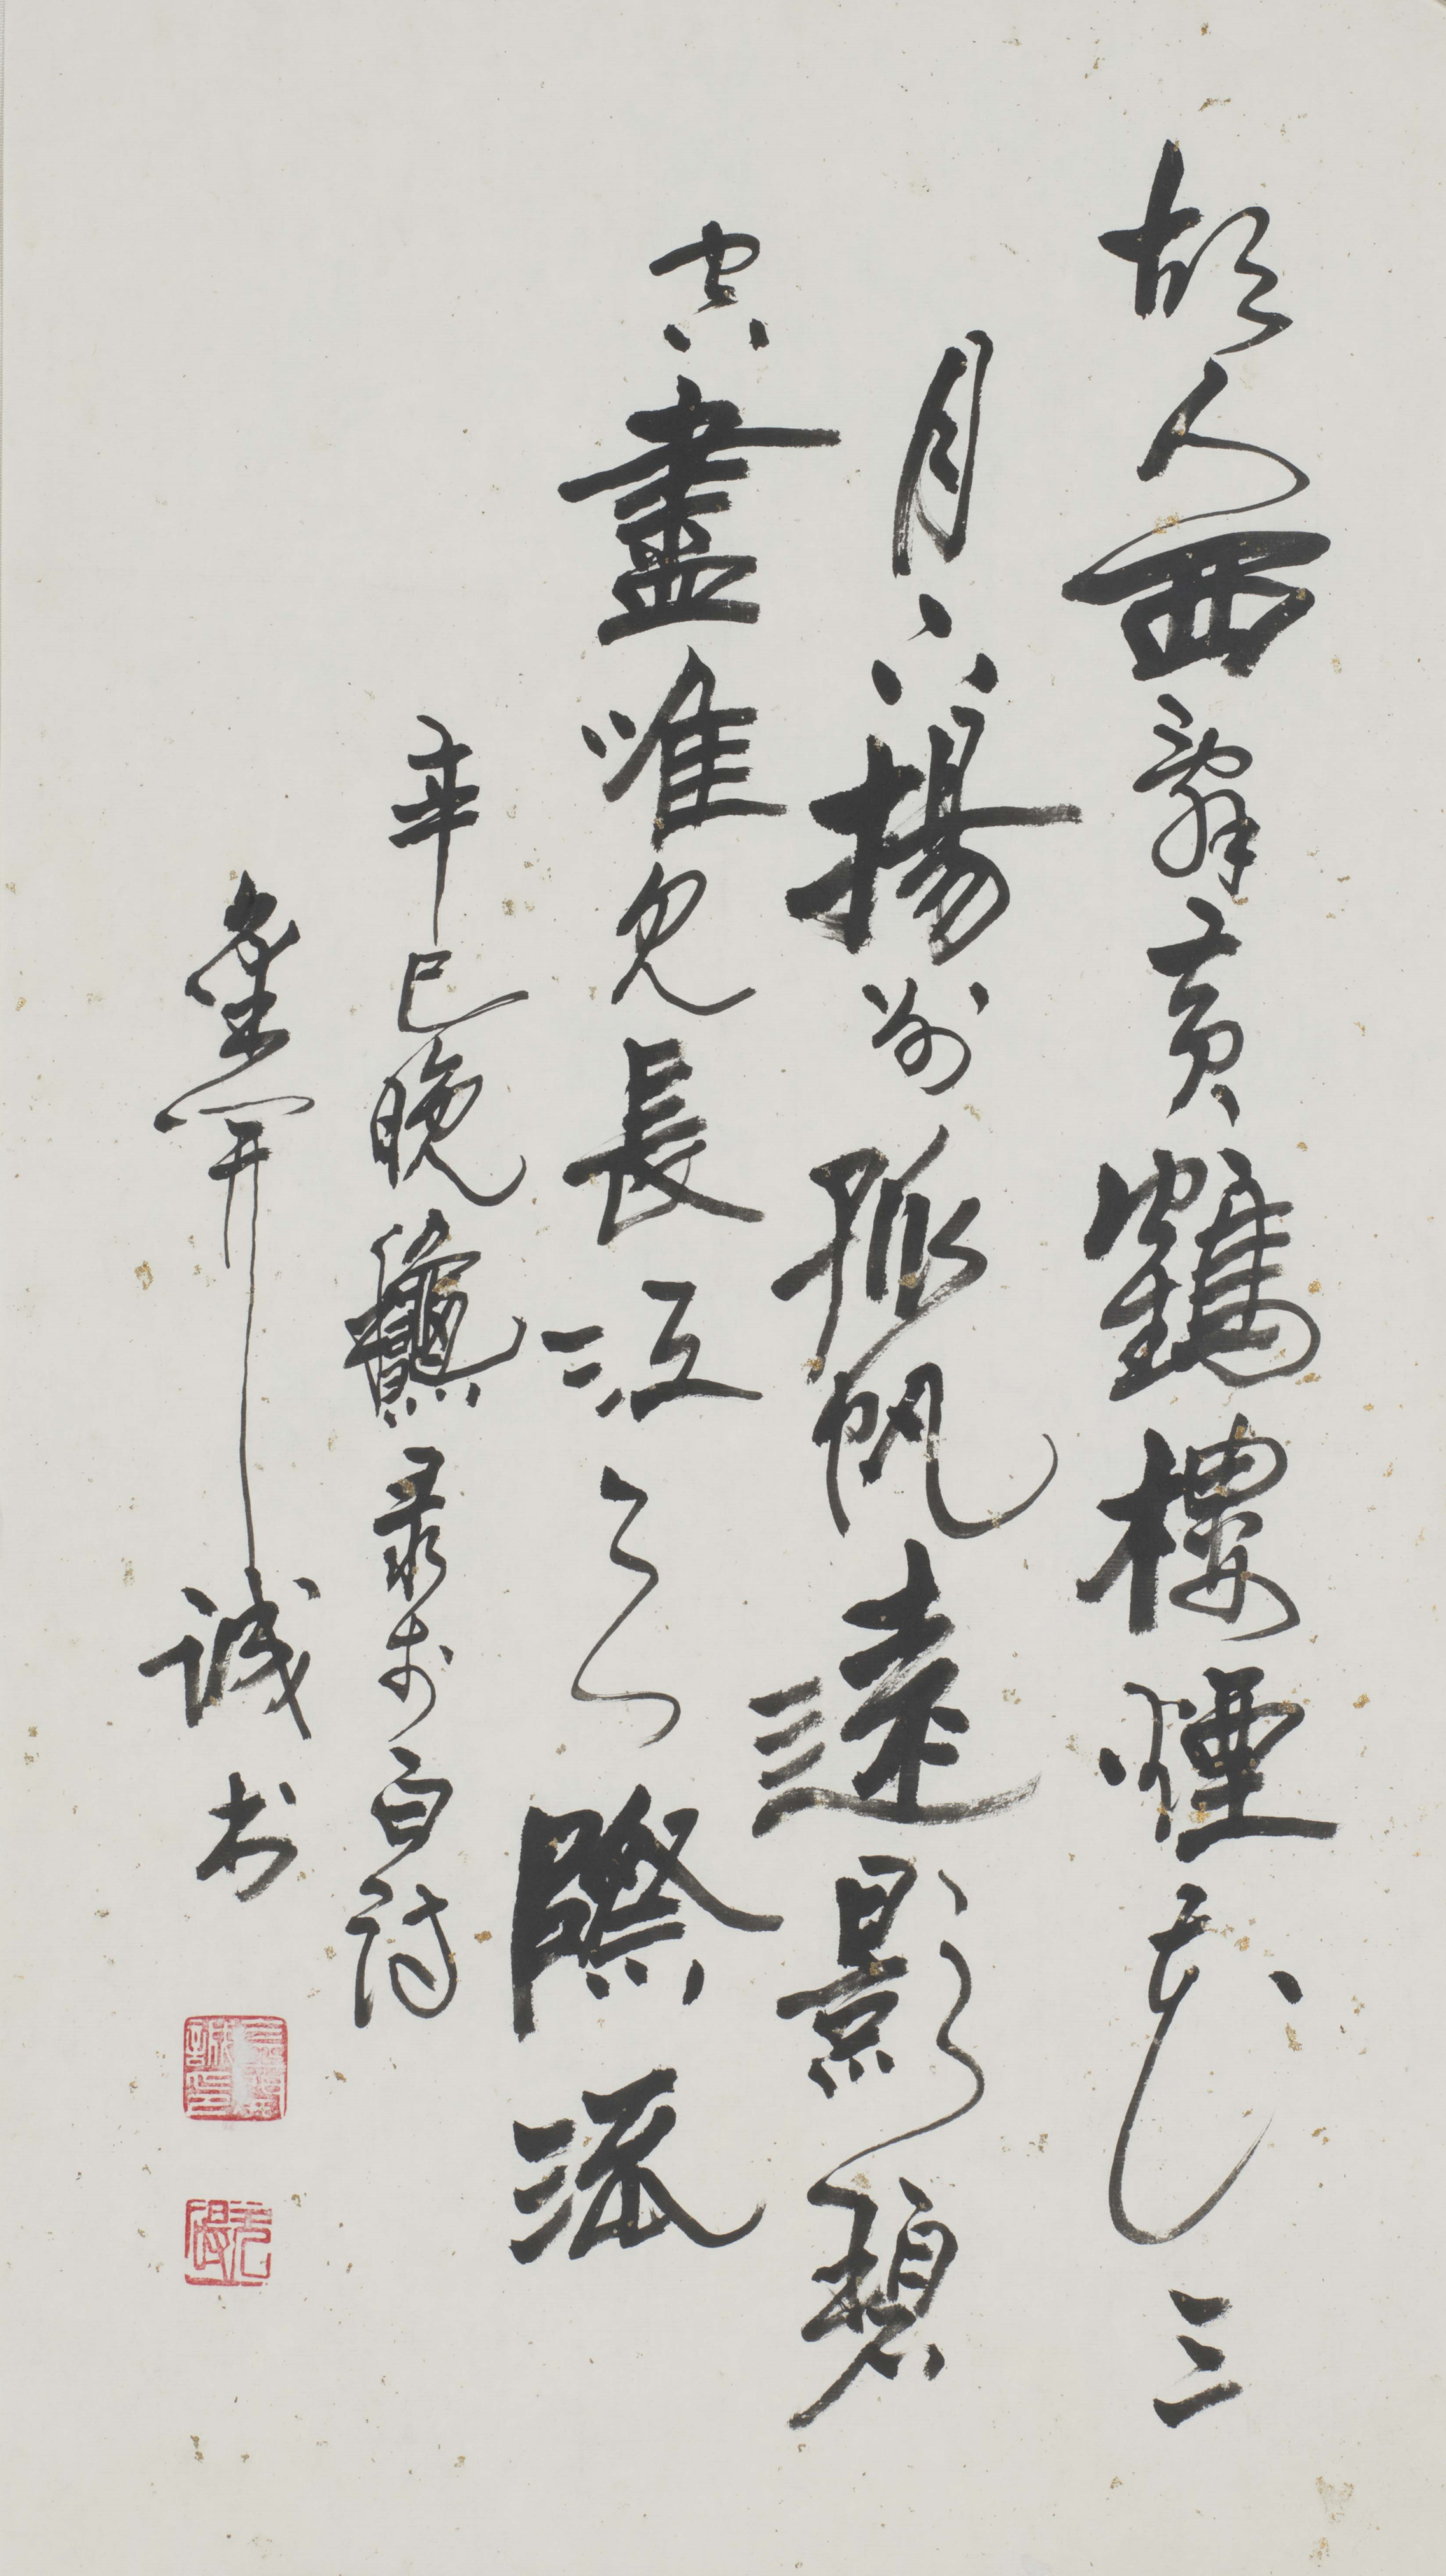 故人西辭黃鶴樓煙花三
月下揚州孤帆遠影碧
空盡唯見長江天際流
辛巳晚龝录李白詩
金開誠书